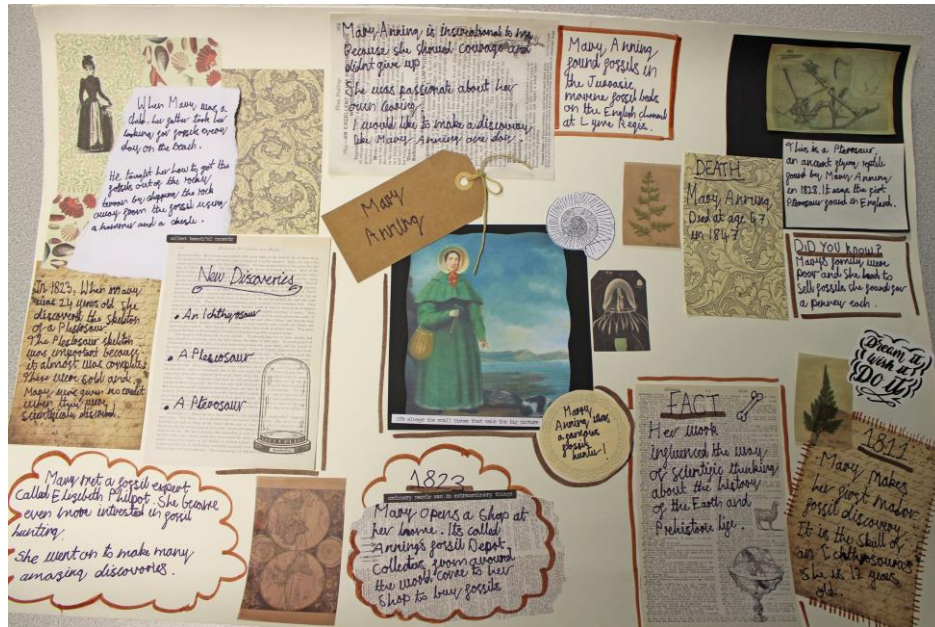 When Mary was a
child her father took her
looking for fossils every
day on the beach.
He taught her how to get the
fossils out of the rocky
by chipping the rock
away from the fossil using
a hammer and a chisle.
Mary Anning is inspirational to me
Because she showed courage and
didnt give up
She was passionate about her
own learing.
I would like to make a discovery
like Mary Anning one day.
Mary Anning
found fossils in
the Jurassic
marine fossil beds
on the English channel
at Lyme Regis.
This is a Pterosaur,
an ancient flying reptile
found by Mary Anning
in 1828. It was the first
Pterosaur found in England.
DEATH
Mary Anning
Died at age 47
in 1847
DID YOU KNOW?
Mary's family were
poor and she had to
sell fossils she found for
a penney each.
Mary
Anning
collect beautiful moments
New Discoveries
• An Ichthyosaur
• A Plesiosaur
• A Pterosaur
In 1823, When mary
was 24 years old she
discoverd the skeleton
of a Plesiosaur
The Plesiosaur skeleton
was important because
it almost was complete.
These were sold and
Mary were given no credit
when they were
scientifically
it's always the small pieces that make the big picture
Mary
Anning was
a famous
fossil
hunter!
Dream it
Wish it
Do it
FACT
Her work
influenced the way
of scientific thinking
about the history
of the Earth and
Prehistoric life.
1811
Mary makes
her first major
fossil discovery
It is the skull of
an Ichthyosaurus
She is 12 years
old.
Mary met a fossil expert
called Elizabeth Philpot. She became
even more intrested in fossil
hunting
She went on to make many
amazing discoveries.
1823
ordinary people can do extraordinary things
Mary opens a Shop at
her home. Its called
Anning's fossil Depot.
Collectors from around
the world come to her
Shop to buy fossils